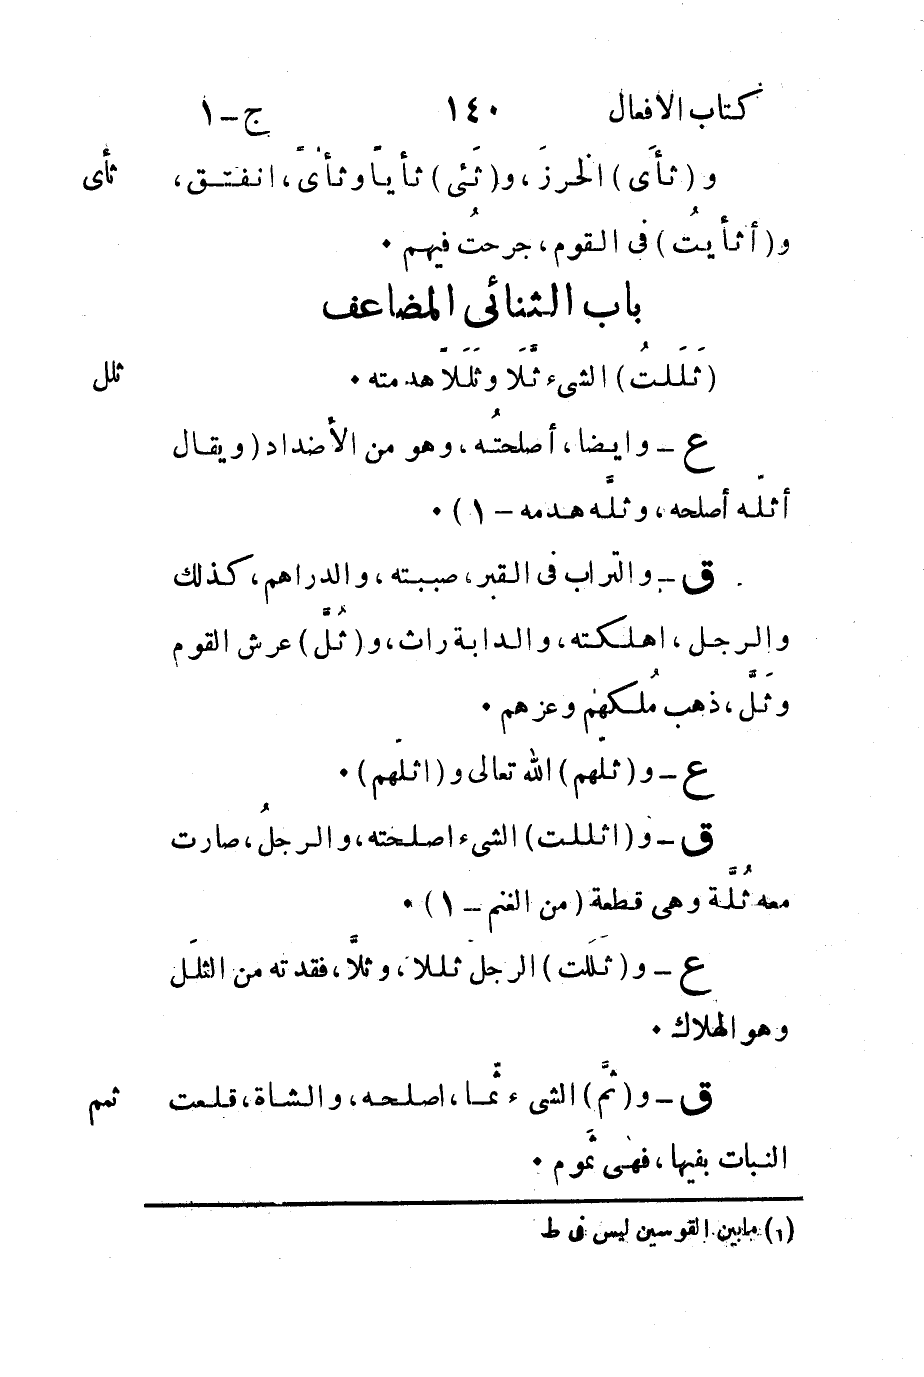 كتاب الافعال ١٤٠ ج-١
و (ثأَى) الخرزَ، و(ثَئى) ثأياً وثأىً، انفتـق، ثأى
و(أثأيتُ) فى القوم، جرحتُ فيهم ٠
باب الثنائى المضاعف
(ثَلَلتُ) الشىء ثَلّا وثَلَلاً هدمته ٠ ثلل
ع - وايضا، أصلحتُه، وهو من الأضداد (ويقال
أثلّه أصلحه، وثلَّه هدمه - ١) ٠
ق - والتراب فى القبر، صببته، والدراهم، كذلك
والرجل، اهلكته، والدابة راث، و(ثُلَّ) عرش القوم
وثَلَّ، ذهب مُلكهم وعزهم ٠
ع - و(ثلّهم) الله تعالى و(اثلّهم) ٠
ق - و(اثللت) الشىء اصلحته، والرجلُ، صارت
معه ثُلَّة وهى قطعة (من الغنم - ١) ٠
ع - و(ثَلَلَت) الرجل ثللا، وثلاًّ، فقدته من الثلَل
وهو الهلاك ٠
ق - و(ثمَّ) الشىء ثمّا، اصلحه، والشاة، قلعت ثمم
النبات بفيها، فهى ثَموم ٠
(١) مابين القوسين ليس فى ط